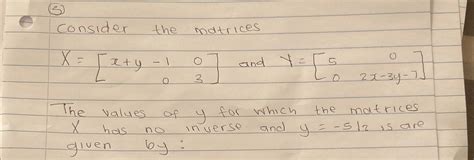 ③
Consider the matrices
X = [ x+y -1 0
0 3 ] and Y = [ 5 0
0 2x-3y-7 ]
The values of y for which the matrices
X has no inverse and y = -5/2 is are
given by: